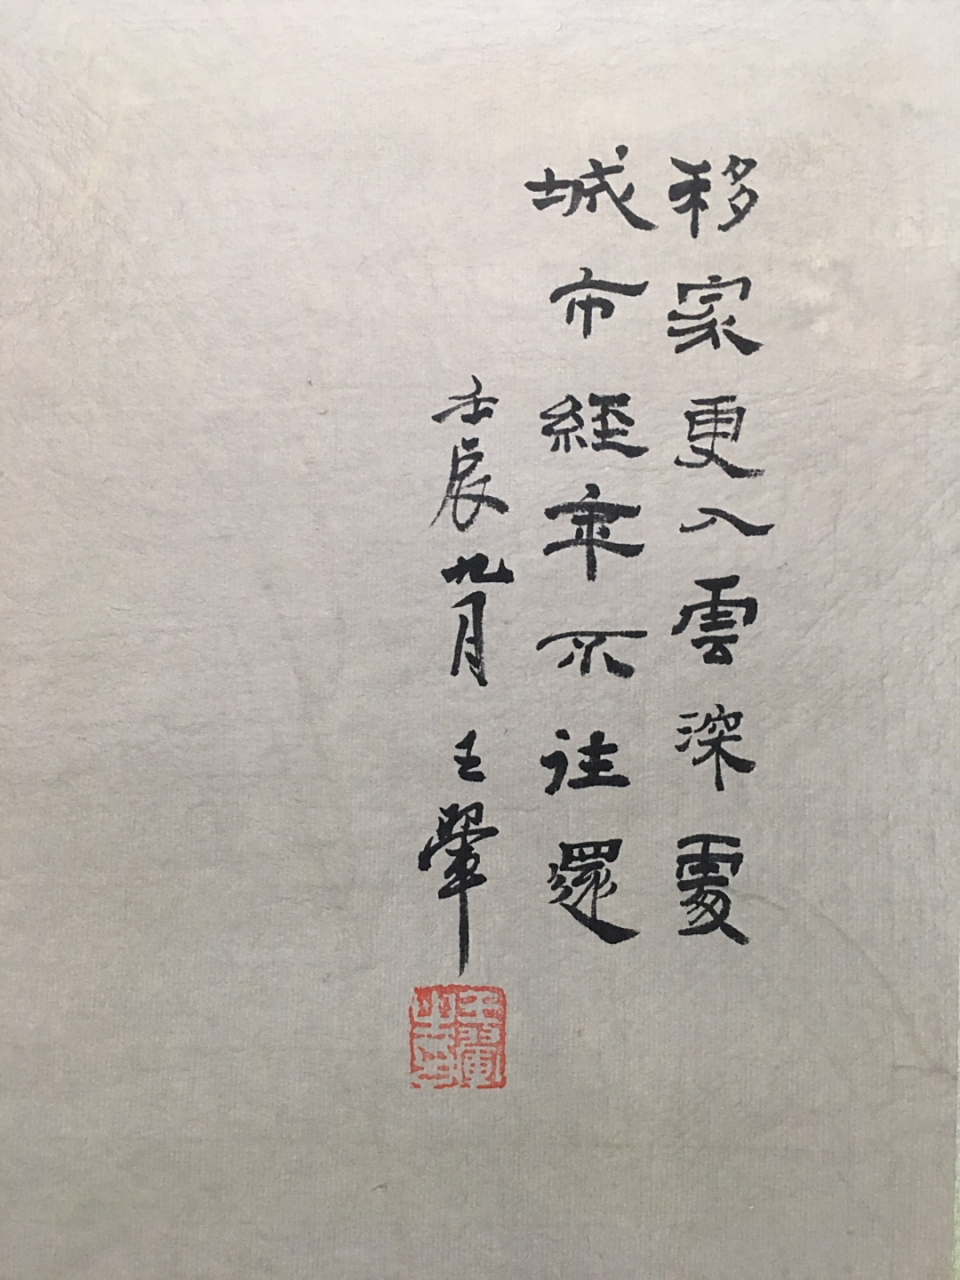 移家更入雲深處
城市經年不往還
壬辰九月 王翬